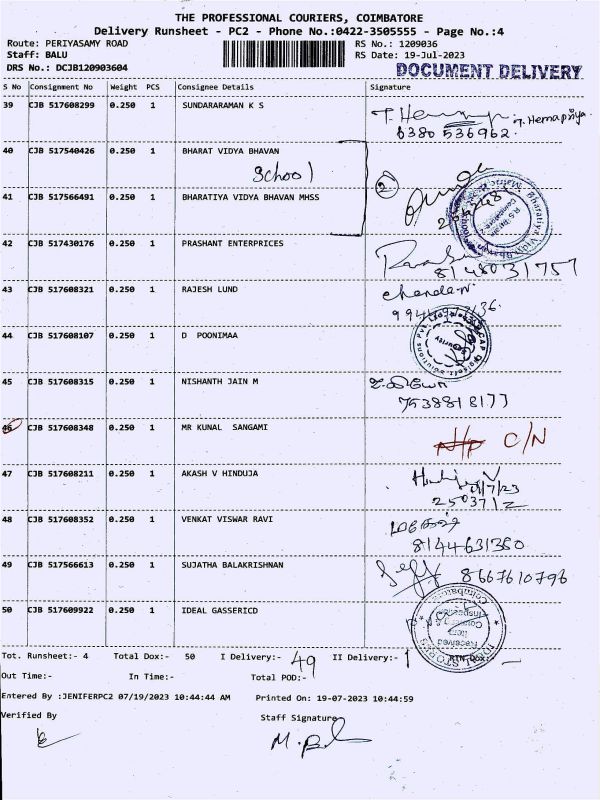 THE PROFESSIONAL COURIERS, COIMBATORE
Delivery Runsheet - PC2 - Phone No.:0422-3505555 - Page No.:4
Route: PERIYASAMY ROAD RS No.: 1209036
Staff: BALU RS Date: 19-Jul-2023
DRS No.: DCJB120903604 DOCUMENT DELIVERY
S No Consignment No Weight PCS Consignee Details Signature
39 CJB 517608299 0.250 1 SUNDARARAMAN K S T. Hemapriya
6380 536962
40 CJB 517540426 0.250 1 BHARAT VIDYA BHAVAN
School 2
41 CJB 517566491 0.250 1 BHARATIYA VIDYA BHAVAN MHSS
42 CJB 517430176 0.250 1 PRASHANT ENTERPRICES
8148031757
43 CJB 517608321 0.250 1 RAJESH LUND
44 CJB 517608107 0.250 1 D POONIMAA
45 CJB 517608315 0.250 1 NISHANTH JAIN M
7538818177
46 CJB 517608348 0.250 1 MR KUNAL SANGAMI C/N
47 CJB 517608211 0.250 1 AKASH V HINDUJA
2503712
48 CJB 517608352 0.250 1 VENKAT VISWAR RAVI
8144631360
49 CJB 517566613 0.250 1 SUJATHA BALAKRISHNAN 8667610796
50 CJB 517609922 0.250 1 IDEAL GASSERICD
Tot. Runsheet:- 4 Total Dox:- 50 I Delivery:- 49 II Delivery:- 1
Out Time:- In Time:- Total POD:-
Entered By :JENIFERPC2 07/19/2023 10:44:44 AM Printed On: 19-07-2023 10:44:59
Verified By Staff Signature